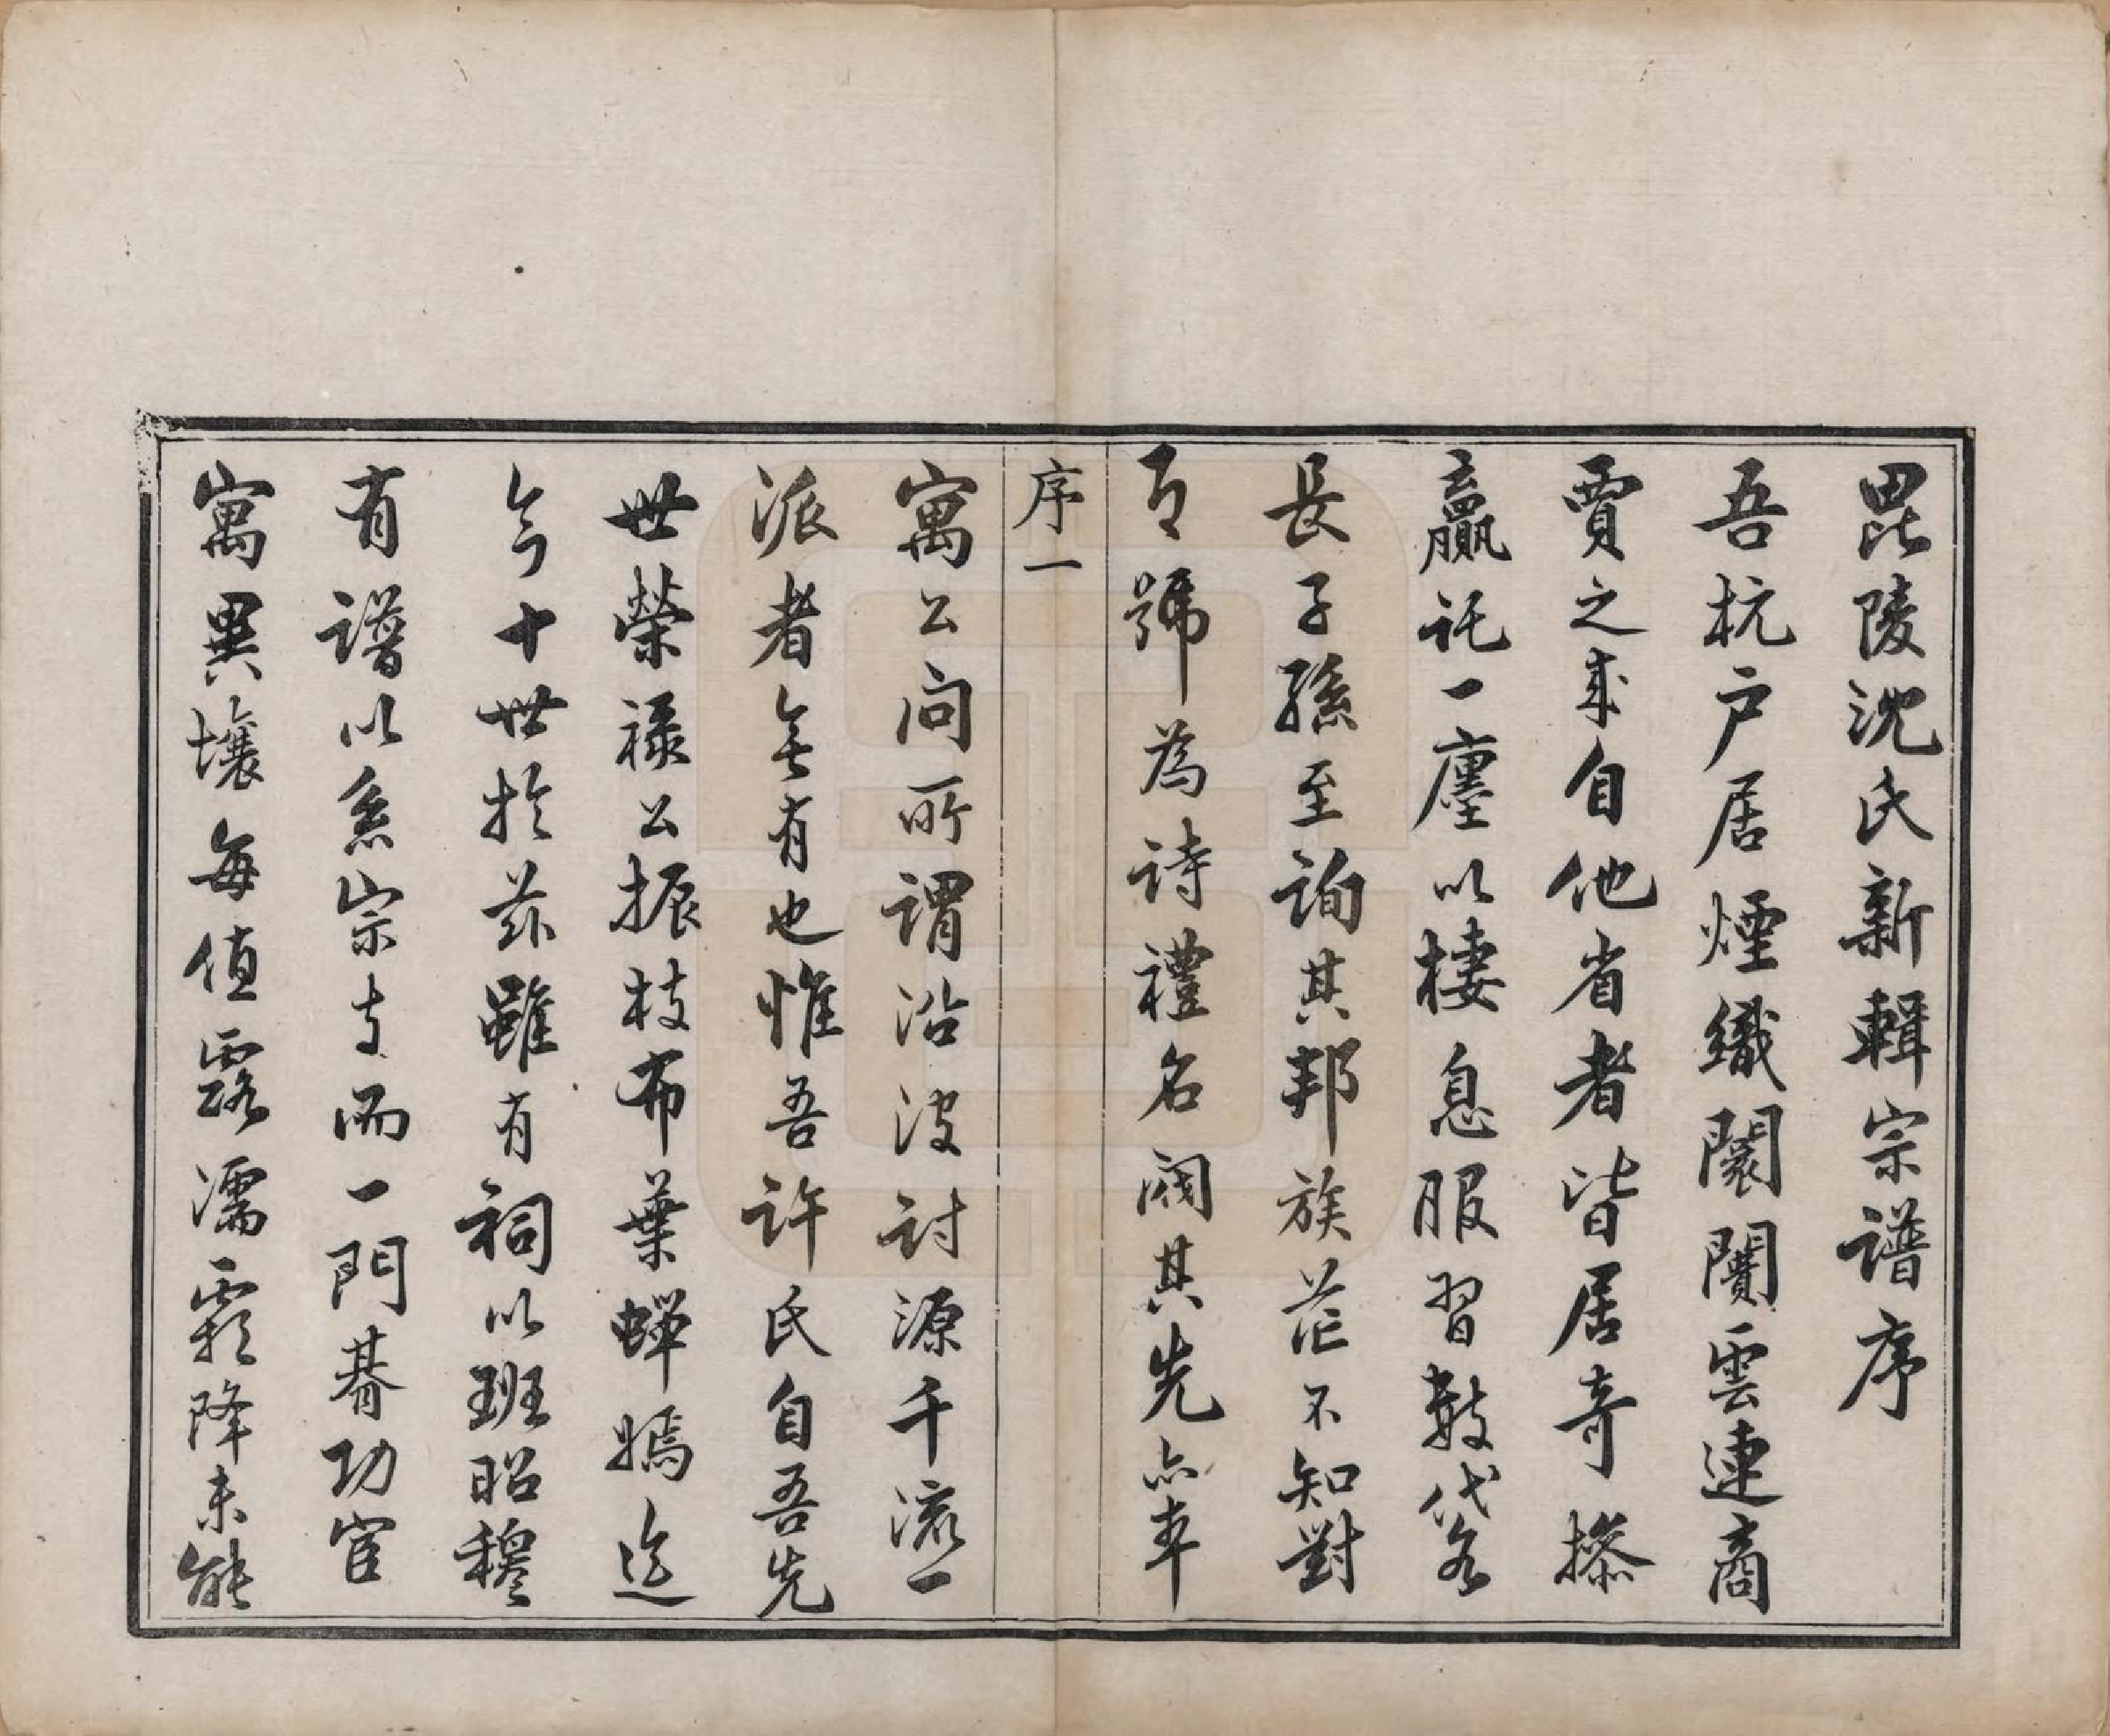 毘陵沈氏新輯宗譜序
吾杭戶居煙織闤闠雲連商
賈之來自他省者皆居奇操
贏託一廛以棲息服習數代名
長子孫至詢其邦族茫不知對
即號為詩禮名閥其先亦率
序一
寓公問所謂沿波討源千流一
派者無有也惟吾許氏自吾先
世榮祿公振枝布葉蟬嫣迄
今十世於茲雖有祠以班昭穆
有譜以系宗支而一門朞功宦
寓異壤每值露濡霜降未能